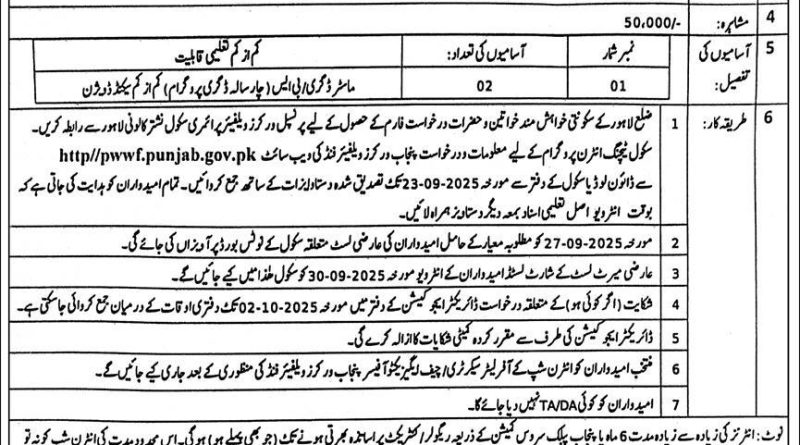 4 مشاہرہ: 50,000/-
5 آسامیوں کی تفصیل:
نمبر شمار آسامیوں کی تعداد: کم از کم تعلیمی قابلیت
01 02 ماسٹر ڈگری/بی ایس (چار سالہ ڈگری پروگرام) کم از کم سیکنڈ ڈویژن
6 طریقہ کار:
1 ضلع لاہور کے سکونتی خواہش مند خواتین و حضرات درخواست فارم کے حصول کے لیے پرنسپل ورکرز ویلفیئر پرائمری سکول نشتر کالونی لاہور سے رابطہ کریں۔
سکول ٹیچنگ انٹرن پروگرام کے لیے معلومات و درخواست پنجاب ورکرز ویلفیئر فنڈ کی ویب سائٹ http//pwwf.punjab.gov.pk
سے ڈاؤن لوڈ یا سکول کے دفتر سے مورخہ 23-09-2025 تک تصدیق شدہ دستاویزات کے ساتھ جمع کروائیں۔ تمام امیدواران کو ہدایت کی جاتی ہے کہ
بوقت انٹرویو اصل تعلیمی اسناد بمعہ دیگر دستاویز ہمراہ لائیں۔
2 مورخہ 27-09-2025 کو مطلوبہ معیار کے حامل امیدواران کی عارضی لسٹ متعلقہ سکول کے نوٹس بورڈ پر آویزاں کی جائے گی۔
3 عارضی میرٹ لسٹ کے شارٹ لسٹڈ امیدواران کے انٹرویو مورخہ 30-09-2025 کو سکول ھٰذا میں کیے جائیں گے۔
4 شکایت (اگر کوئی ہو) کے متعلقہ درخواست ڈائریکٹر ایجوکیشن کے دفتر میں مورخہ 02-10-2025 تک دفتری اوقات کے درمیان جمع کروائی جا سکتی ہے۔
5 ڈائریکٹر ایجوکیشن کی طرف سے مقرر کردہ کمیٹی شکایات کا ازالہ کرے گی۔
6 منتخب امیدواران کو انٹرن شپ کے آفر لیٹر سیکرٹری/چیف ایگزیکٹو آفیسر پنجاب ورکرز ویلفیئر فنڈ کی منظوری کے بعد جاری کیے جائیں گے۔
7 امیدواران کو کوئی TA/DA نہیں دیا جائے گا۔
نوٹ: انٹرنز کی زیادہ سے زیادہ مدت 6 ماہ یا پنجاب پبلک سروس کمیشن کے ذریعہ ریگولر/کنٹریکٹ پر اساتذہ بھرتی ہونے تک (جو بھی پہلے ہو) ہوگی۔ اس محدود مدت کی انٹرن شپ کو نہ تو